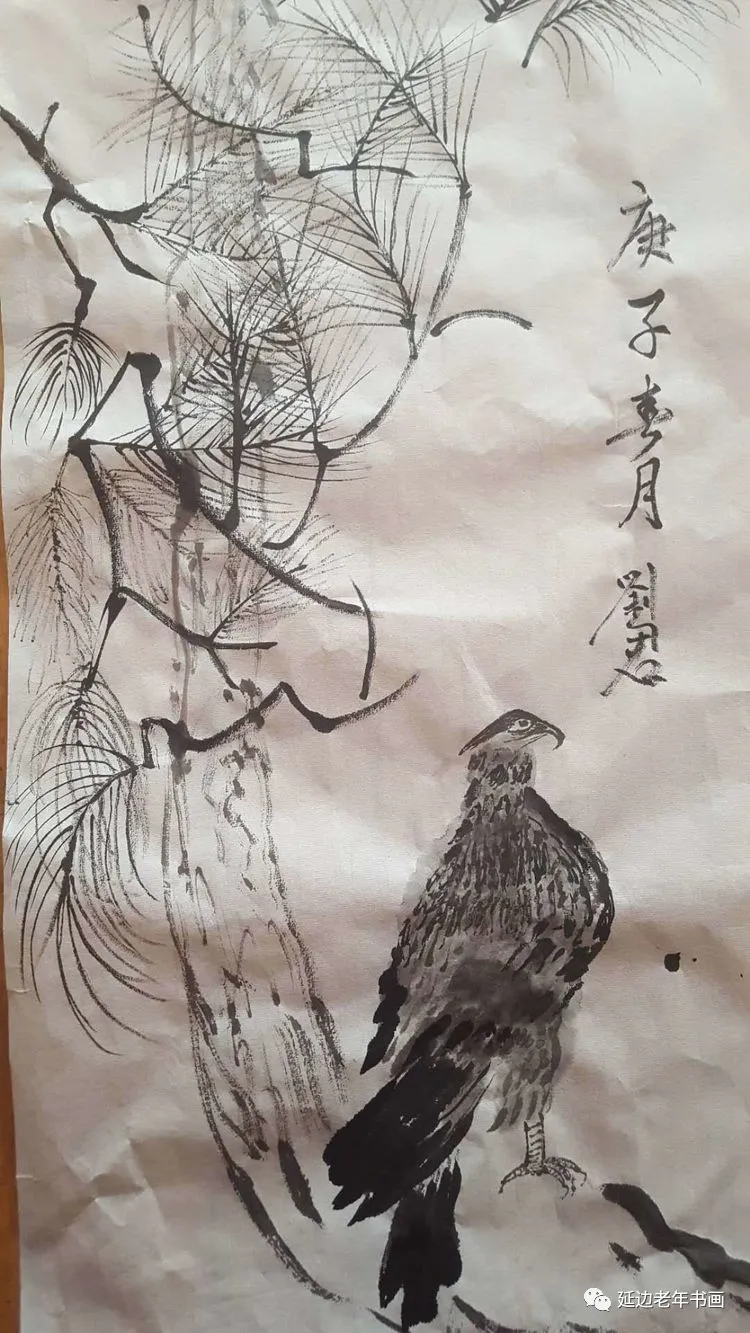 庚子春月 劉君
延边老年书画